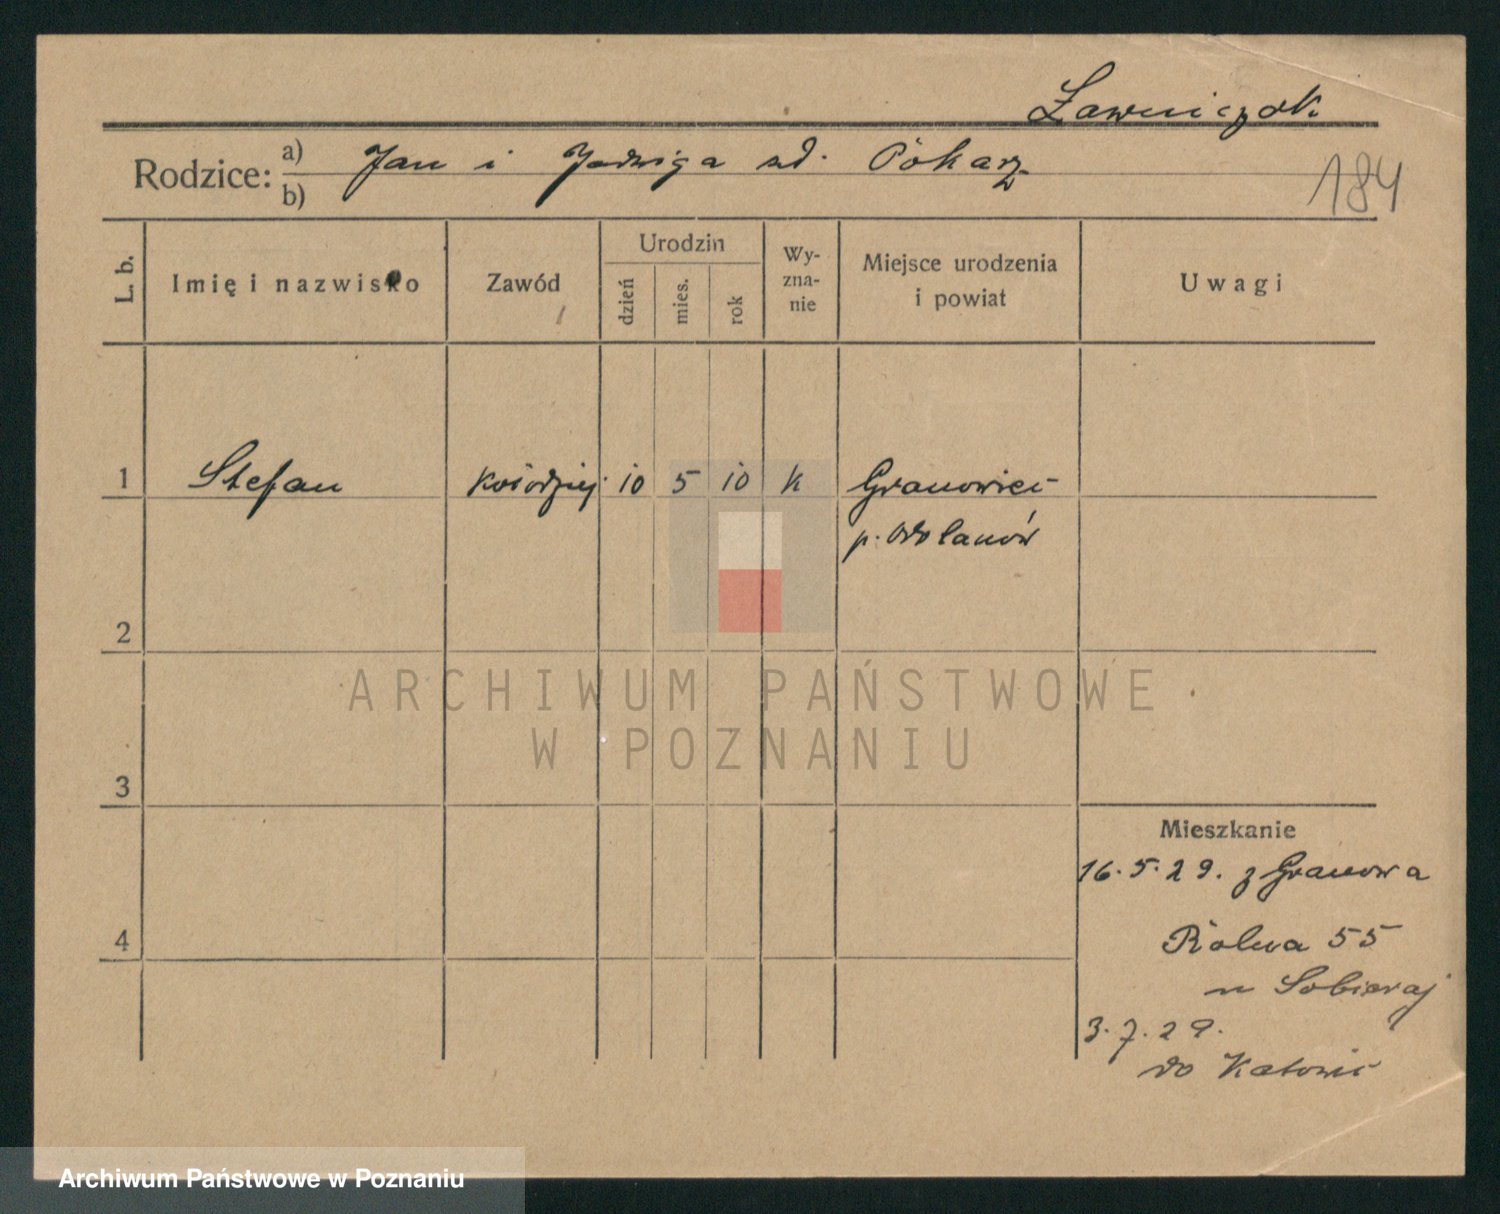 Ławniczak
184
Rodzice: a) Jan i Jadwiga zd. Piekarz
b)
L. b. Imię i nazwisko Zawód Urodzin dzień mies. rok Wyznanie Miejsce urodzenia i powiat Uwagi
1 Stefan kołodziej 10 5 10 k Granowiec
p. Odolanów
2
3
4
Mieszkanie
16.5.29. z Granowa
Rolna 55
u Sobieraj
3.7.29.
do Katowic
ARCHIWUM PAŃSTWOWE
W POZNANIU
Archiwum Państwowe w Poznaniu